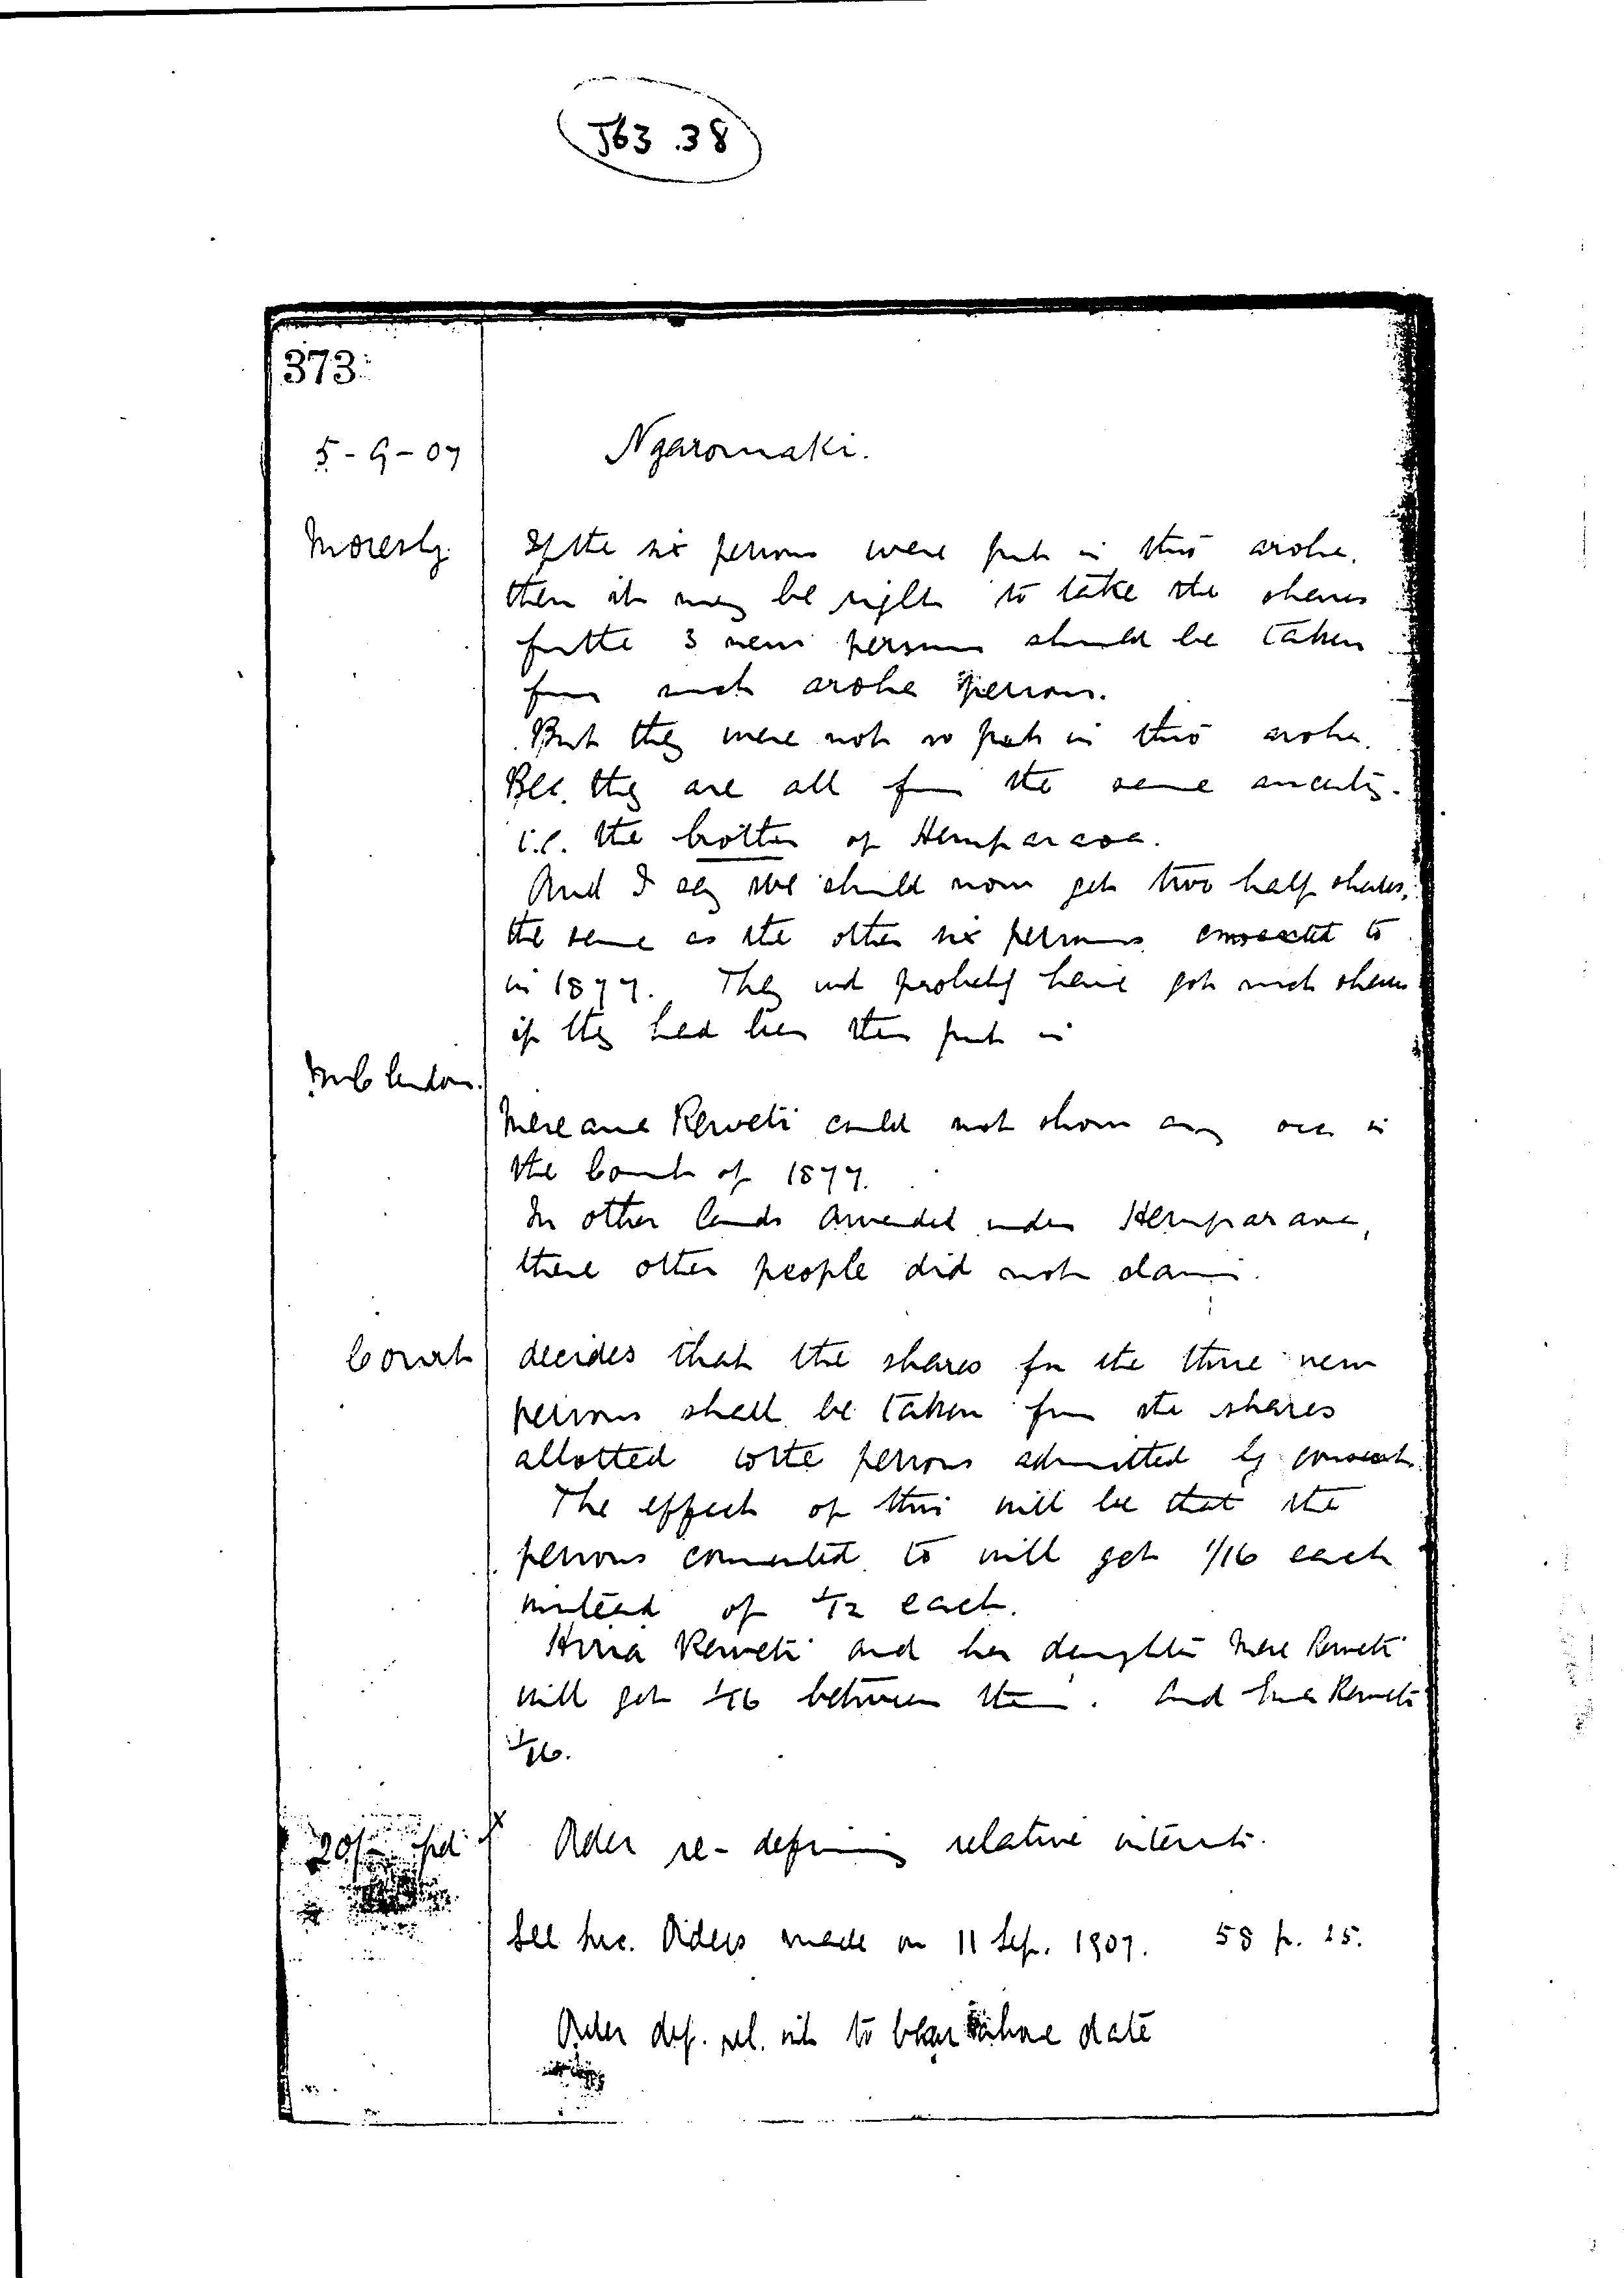 J63.38
373
5-9-07
Ngaromaki.
Moresby. If the six persons were put in thro' aroha.
then it may be right to take the shares
for the 3 new persons should be taken
from such aroha persons.
But they were not so put in thro' aroha.
Bec. they are all from the same ancestry.
i.e. the brother of Heruparaoa.
And I say we should now get two half shares,
the same as the other six persons consented to
in 1877. They wd probably have got such shares
if they had been then put in
McLendon.
Mereana Rerweti could not show any occ in
the Court of 1877.
In other lands awarded under Heruparaoa,
these other people did not claim.
Court decides that the shares for the three new
persons shall be taken from the shares
allotted to the persons admitted by consent.
The effect of this will be that the
persons consented to will get 1/16 each
instead of 1/12 each.
Hiria Rerweti and her daughter Mere Rerweti
will get 1/16 between them. And Rerweti
1/16.
20/- pd x Order re-defining relative interests.
See Suc. Orders made on 11 Sep. 1907. 58 p. 25.
Order def. rel. int to bear date